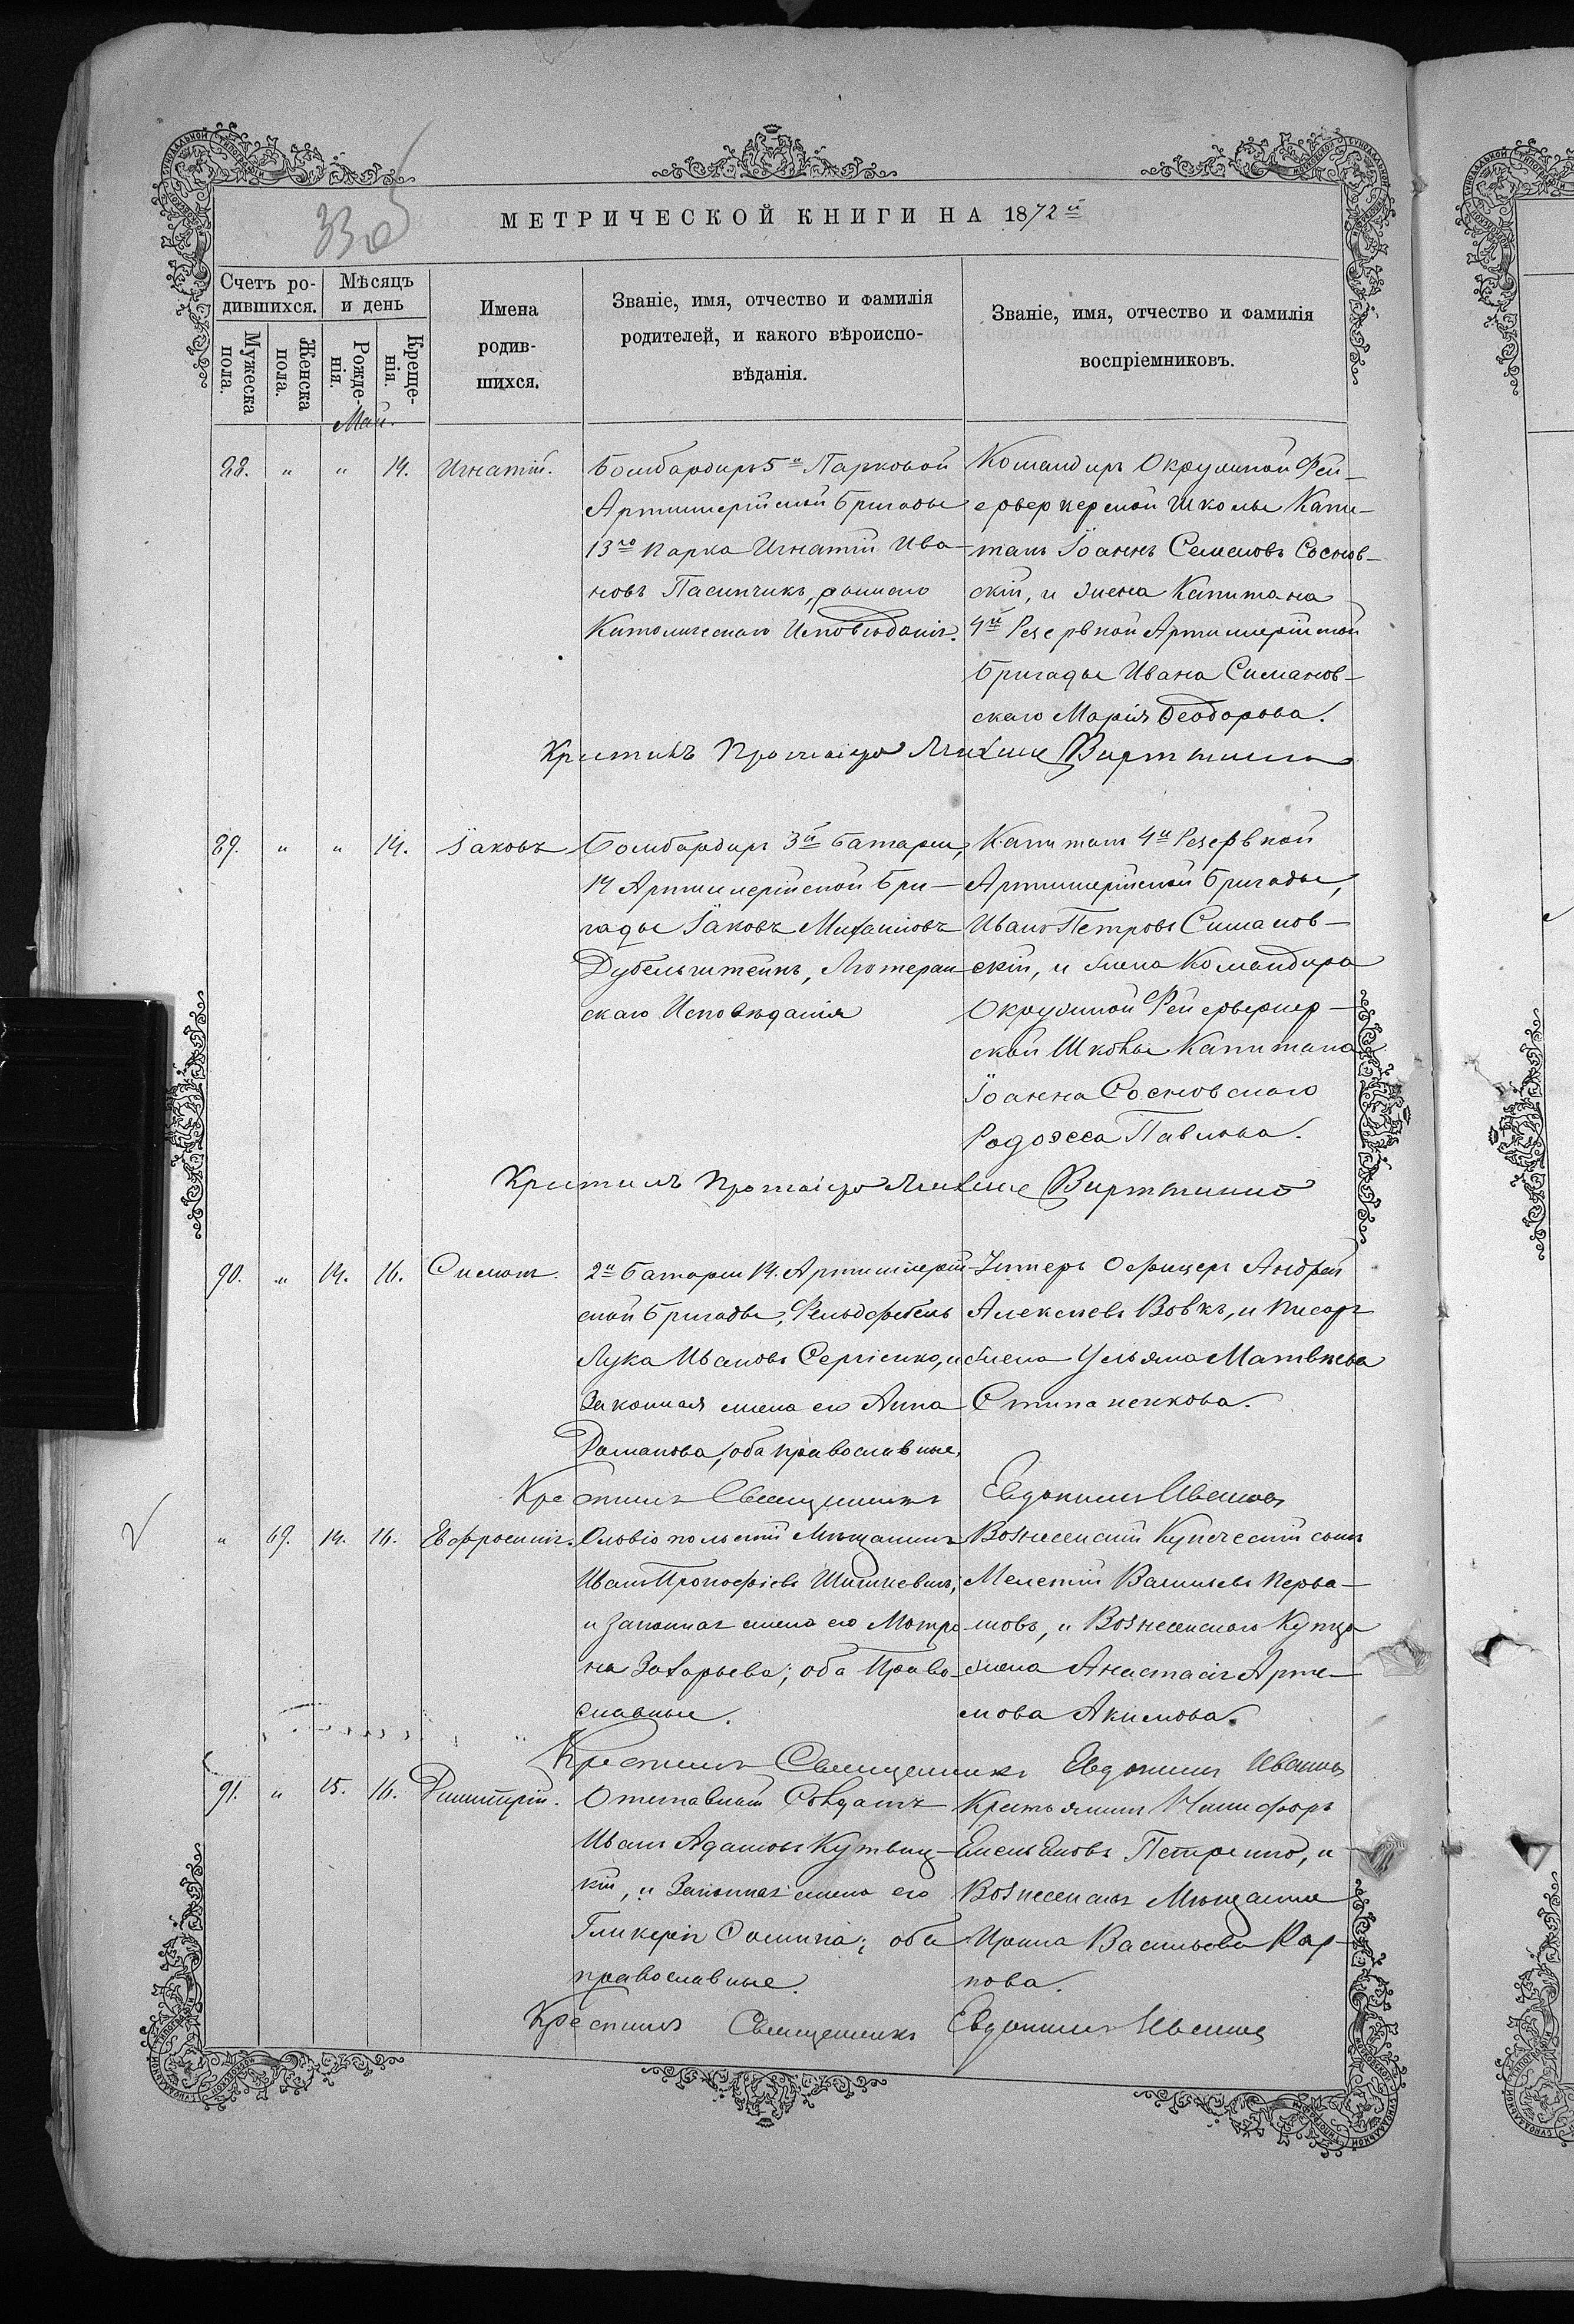 33об
МЕТРИЧЕСКОЙ КНИГИ НА 1872й
Счетъ ро-
дившихся.
Мѣсяцъ
и день
Имена
родив-
шихся.
Званіе, имя, отчество и фамилія
родителей, и какого вѣроиспо-
вѣданія.
Званіе, имя, отчество и фамилія
воспріемниковъ.
Мужеска
пола.
Женска
пола.
Рожде-
нія.
Креще-
нія.
Май.
88. " " 14. Игнатій.
Бомбардиръ 5й Парковой
Артиллерійской Бригады
13го парка Игнатій Ива-
новъ Пасинчикъ, римско
Католическаго Исповѣданія.
Командиръ Окружной Фей-
ерверкерской Школы Капи-
танъ Іоаннъ Семеновъ Соснов-
скій, и жена Капитана
4й Резервной Артиллерійской
Бригады Ивана Симанов-
скаго Марія Ѳеодорова.
Крестилъ
89. " " 14. Іаковъ
Бомбардиръ 3й батареи,
14 Артиллерійской Бри-
гады Іаковъ Михайловъ
Дубельштейнъ, Лютеран-
скаго Исповѣданія
Капитанъ 4й Резервной
Артиллерійской Бригады,
Иванъ Петровъ Симанов-
скій, и жена Командира
Окружной Фейерверкер-
ской Школы Капитана
Іоанна Сосновскаго
Павлова.
Крестилъ
90. " 14. 16. Симонъ.
2й Батареи 14. Артиллерій-
ской Бригады, Фельдфебель
Лука Ивановъ Сергіенко, и
Законная жена его Анна
Романова, оба православные,
Унтеръ Офицеръ Андрей
Алексѣевъ Вовкъ, и писаря
жена Ульяна Матвѣева
Степаненкова.
Крестилъ Священникъ Евдокимъ Ивановъ
" 69. 14. 16. Евфросинія.
Ольвіопольскій Мѣщанинъ
Иванъ Прокофіевъ Шишкевичъ,
и законная жена его Матро-
на Захарьева; оба Право-
славные.
Вознесенскій Купеческій сынъ
Мелетій Васильевъ
и Вознесенскаго Купца
жена Анастасія Арте-
мова Акимова.
Крестилъ Священникъ Евдокимъ Ивановъ
91. " 15. 16. Димитрій.
Отставной Солдатъ
Иванъ Адамовъ
кій, и Законная жена его
Гликерія Саввина; оба
православные.
Крестьянинъ Никифоръ
Емельяновъ Петренко, и
Вознесенская Мѣщанка
Ирина Васильева Кар-
пова.
Крестилъ Священникъ Евдокимъ Ивановъ